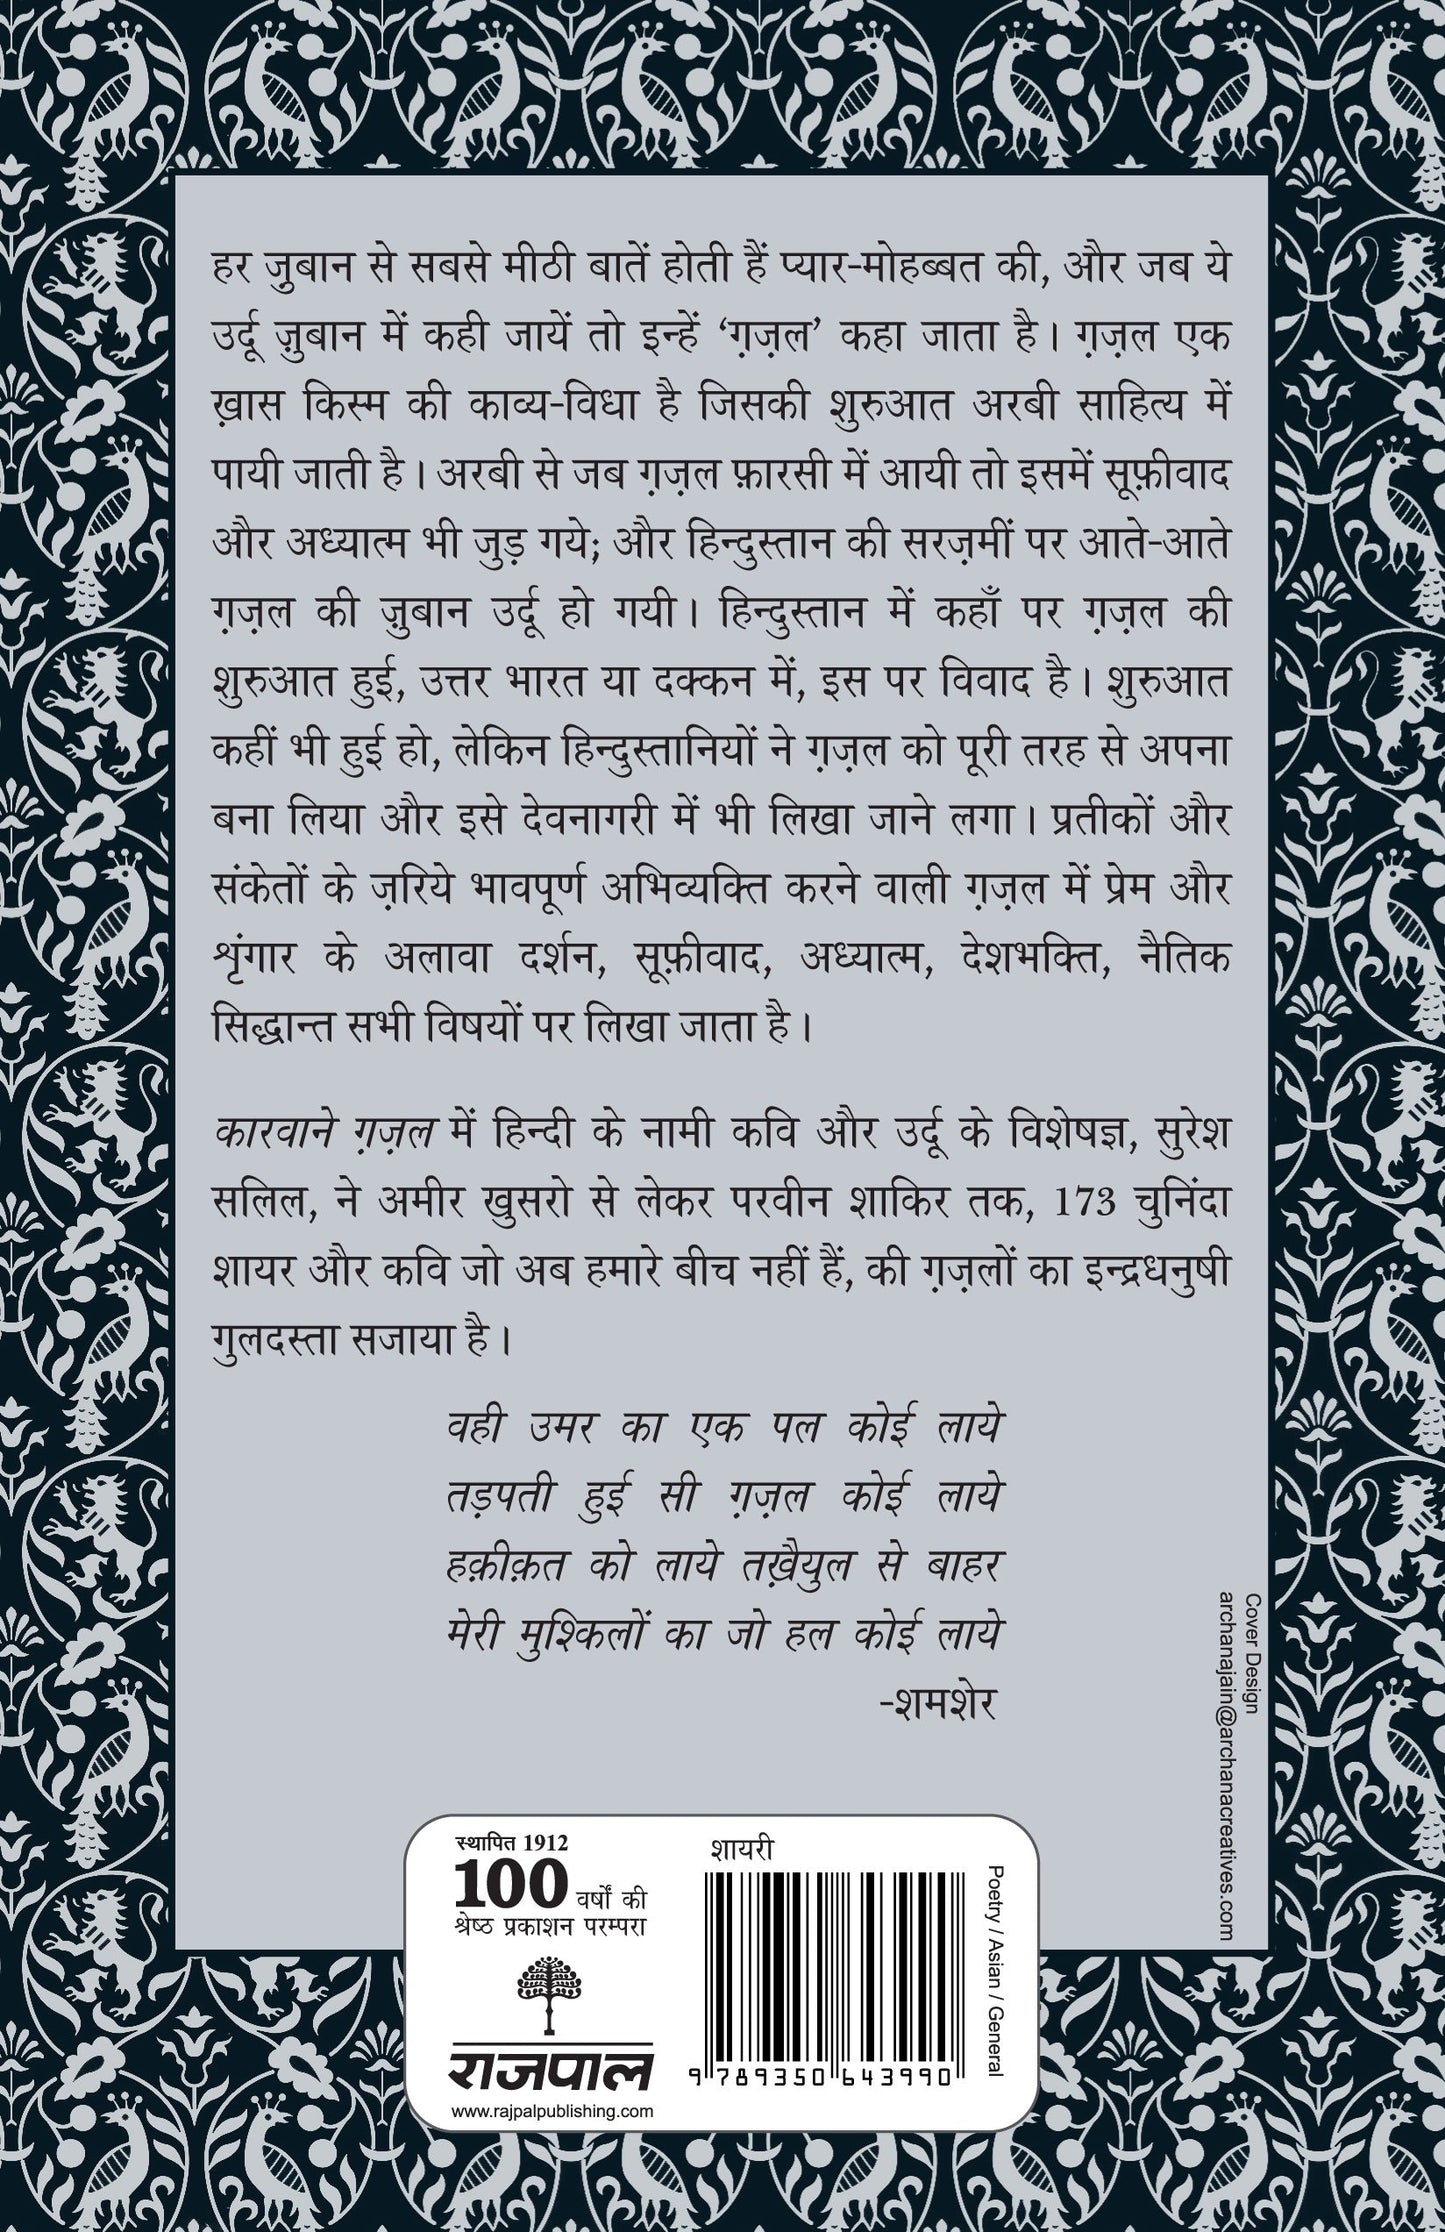 हर जुबान से सबसे मीठी बातें होती हैं प्यार-मोहब्बत की, और जब ये
उर्दू ज़ुबान में कही जायें तो इन्हें ‘ग़ज़ल’ कहा जाता है। ग़ज़ल एक
ख़ास किस्म की काव्य-विधा है जिसकी शुरुआत अरबी साहित्य में
पायी जाती है। अरबी से जब ग़ज़ल फ़ारसी में आयी तो इसमें सूफ़ीवाद
और अध्यात्म भी जुड़ गये; और हिन्दुस्तान की सरज़मीं पर आते-आते
ग़ज़ल की ज़ुबान उर्दू हो गयी। हिन्दुस्तान में कहाँ पर ग़ज़ल की
शुरुआत हुई, उत्तर भारत या दक्कन में, इस पर विवाद है। शुरुआत
कहीं भी हुई हो, लेकिन हिन्दुस्तानियों ने ग़ज़ल को पूरी तरह से अपना
बना लिया और इसे देवनागरी में भी लिखा जाने लगा। प्रतीकों और
संकेतों के ज़रिये भावपूर्ण अभिव्यक्ति करने वाली ग़ज़ल में प्रेम और
शृंगार के अलावा दर्शन, सूफ़ीवाद, अध्यात्म, देशभक्ति, नैतिक
सिद्धान्त सभी विषयों पर लिखा जाता है।
कारवाने ग़ज़ल में हिन्दी के नामी कवि और उर्दू के विशेषज्ञ, सुरेश
सलिल, ने अमीर खुसरो से लेकर परवीन शाकिर तक, 173 चुनिंदा
शायर और कवि जो अब हमारे बीच नहीं हैं, की ग़ज़लों का इन्द्रधनुषी
गुलदस्ता सजाया है।
वही उमर का एक पल कोई लाये
तड़पती हुई सी ग़ज़ल कोई लाये
हक़ीक़त को लाये तख़ैयुल से बाहर
मेरी मुश्किलों का जो हल कोई लाये
-शमशेर
Cover Design
archanajain@archanacreatives.com
स्थापित 1912
100 वर्षों की
श्रेष्ठ प्रकाशन परम्परा
राजपाल
www.rajpalpublishing.com
शायरी
9 789350 643990
Poetry / Asian / General